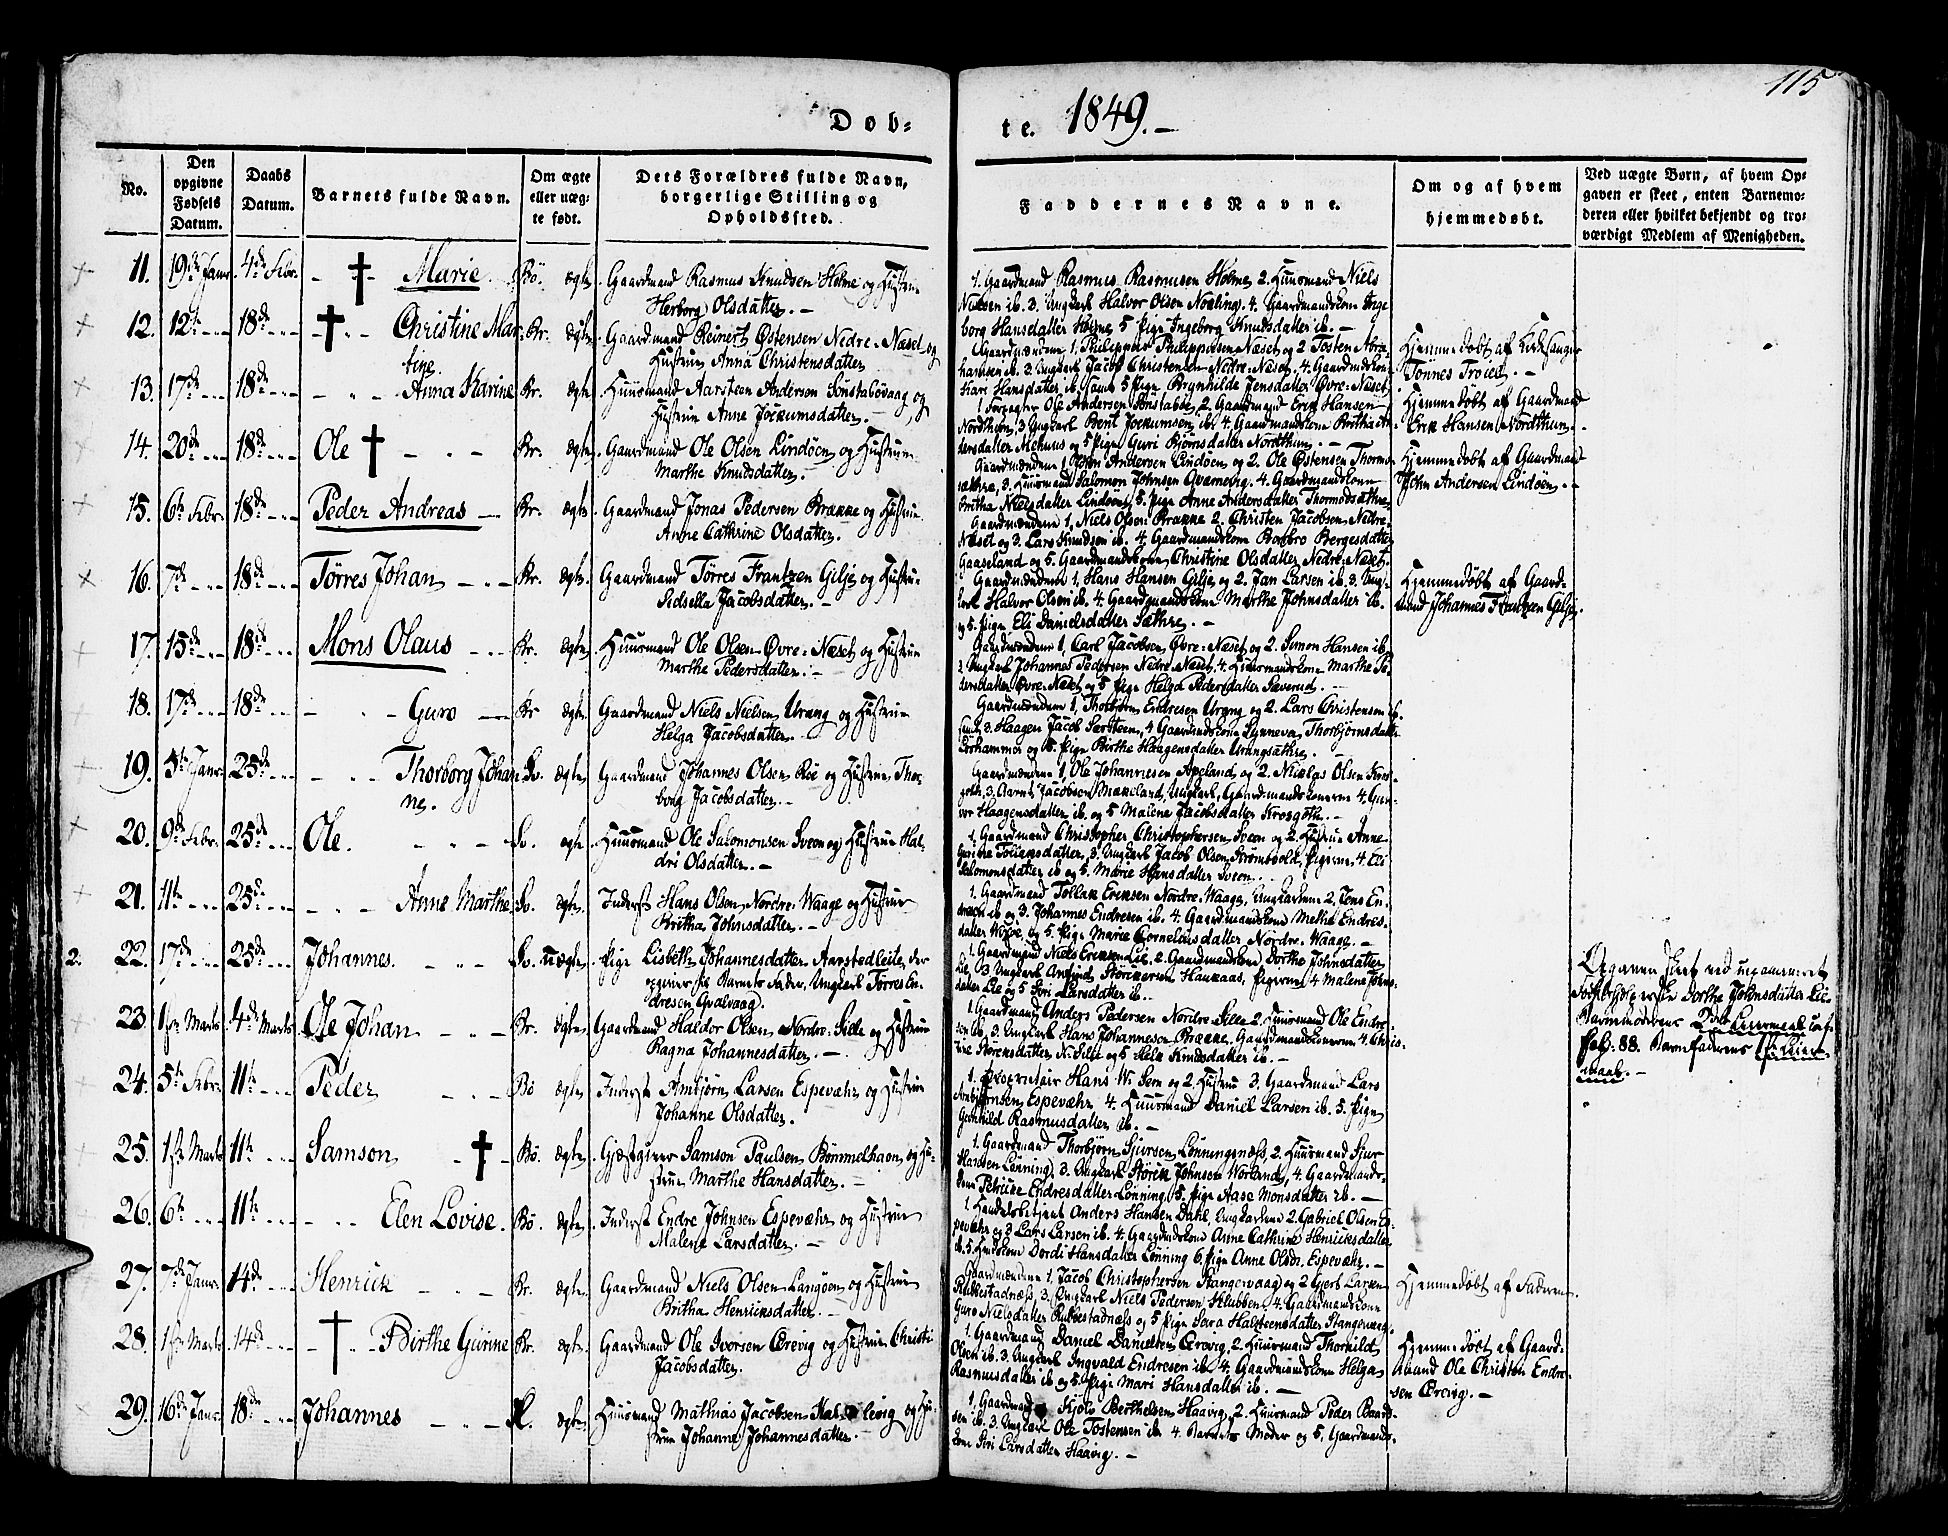 115
Døb-
te. 1849.-
No.
Den
opgivne
Fødsels
Datum.
Daabs
Datum.
Barnets fulde Navn.
Om ægte
eller uæg-
te født.
Dets Forældres fulde Navn,
borgerlige Stilling og
Opholdssted.
Faddernes Navne.
Om og af hvem
hjemmedøbt.
Ved uægte Børn, af hvem Op-
gaven er skeet, enten Barnemo-
deren eller hvilket bekjendt og tro-
værdigt Medlem af Menigheden.
11. 19de Janr. 4de Febr. Marie Bø. ægte. Gaardmand Rasmus Knudsen Holme og Hustrue
Herborg Olsdatter.
1. Gaardmand Rasmus Rasmusen Holme 2. Huusmand Niels
Nielsen ib. 3. Ungkarl Halvor Olsen Nøkling. 4. Gaardmandskone Inge
borg Hansdatter Holme 5 Pige Ingeborg Knudsdatter ib.
12. 12te 18de Christine Mar-
tine. Br. ægte. Gaardmand Reinert Østensen Nedre-Næset og
Hustrue Anna Christensdatter
Gaardmændene 1. Philippus Philippusen Næset og 2 Tosten Abra-
hamsen ib. 3. Ungkarl Jacob Christensen Nedre-Næset, 4. Gaardmandskone
Kari Hansdatter ib. samt 5 Pige Brynhilde Jensdatter Øvre-Næset
Hjemmedøbt af Kirkesanger
Tønnes Troied.
13. 17de 18de Anna Karine Br. ægte. Huusmand Aarsteen Andersen Sønstabøvaag og
Hustrue Anne Jockumsdatter.
1 Forpagter Ole Andersen Sønstabøe, 2. Gaardmand Erik Hansen
Nordthun, 3 Ungkarl Bent Jockumsen ib. 4. Gaardmandskone Britha An-
dersdatter Mehuus og 5 Pige Guri Bjørnsdatter Nordthun.
Hjemmedøbt af Gaardmand
Erik Hansen Nordthun.
14. 20de 18de Ole Br. ægte. Gaardmand Ole Olsen Lindøen og Hustrue
Marthe Knudsdatter.
Gaardmændene 1 John Andersen Lindøen og 2. Ole Østensen Thormo-
sæthre, 3. Huusmand Salomon Johnsen Qvernevig. 4. Gaardmandskone
Britha Nielsdatter Lindøen, 5. Pige Anne Andersdatter Thormodsæthre
Hjemmedøbt af Gaardmand
John Andersen Lindøen.
15. 6te Febr. 18de Peder Andreas Br. ægte. Gaardmand Jonas Pedersen Brække og Hustrue
Anne Cathrine Olsdatter.
Gaardmændene 1, Niels Olsen Brække 2. Christen Jacobsen Nedre-
Næset og 3. Lars Knudsen ib. 4. Gaardmandskone Barbro Bergesdatter
Gaaseland og 5. Gaardmandskone Christine Olsdatter Nedre-Næset.
16. 7de 18de Tørres Johan Br. ægte. Gaardmand Tørres Frantzen Gilje og Hustrue
Sidsella Jacobsdatter.
Gaardmændene 1, Hans Hansen Gilje og 2. Jan Larsen ib. 3. Ung-
karl Halvor Olsen ib. 4. Gaardmandskone Marthe Johnsdatter ib.
og 5. Pige Eli Danielsdatter Sæthre.
Hjemmedøbt af Gaard-
mand Johannes Frantzen Gilje.
17. 15de 18de Mons Olaus Br. ægte Huusmand Ole Olsen Øvre-Næset og Hustrue
Marthe Pedersdatter.
Gaardmændene 1, Carl Jacobsen Øvre-Næset og 2. Simon Hansen ib.
3. Ungkarl Johannes Pedersen Nedre-Næset, 4. Huusmandskone Marthe Pe-
dersdatter Øvre-Næset og 5 Pige Helga Pedersdatter Sæverud.
18. 17de 18de Guro Br ægte. Gaardmand Niels Nielsen Urang og Hustrue
Helga Jacobsdatter.
Gaardmændene 1, Thorbjørn Endresen Urang og 2. Lars Christensen ib.
samt 3. Haagen Jacob Sersteen, 4 Gaardmandskone Synneva Thorbjørnsdatter
og 5. Pige Birthe Haagensdatter Urangsæthre.
19. 5te Janr. 25de Thorborg Johan-
ne. Sv. ægte. Gaardmand Johannes Olsen Røe og Hustrue Thor-
borg Jacobsdatter.
Gaardmændene 1, Ole Johannesen Apeland og 2. Nicolas Olsen Kros-
goth, 3. Aarnt Jacobsen Mækeland, Ungkarl, Gaardmandskonerne 4. Gun-
vor Haagensdatter ib. og 5 Malene Jacobsdatter Krosgoth.
20. 9de Febr. 25de Ole. Sv. ægte. Huusmand Ole Salomonsen Sveen og Hustrue Hal-
dri Olsdatter.
1, Gaardmand Christopher Christophersen Sveen og 2. Hustrue Anne
Gurine Tollaksdatter, 3. Ungkarl Jacob Olsen Strømvold, Pigerne, 4. Eli
Salomonsdatter ib. og 5. Marie Hansdatter Sveen.
21. 11te 25de Anne Marthe Sv. ægte. Inderst Hans Olsen Nordre-Waage og Hustrue
Britha Johnsdatter.
1. Gaardmand Tollak Ericksen Nordre-Waage, Ungkarlene 2. Jens En-
dresen ib. og 3. Johannes Endresen ib. 4. Gaardmandskone Metha Endres-
datter og 5. Pige Marie Cornelsusdatter Nordre-Waage.
2. 22. 17de 25de Johannes. Sv. uægte. Pige Lisbeth Johannesdatter Aarstedleite, der
opgiver for Barnets Fader, Ungkarl Tørres En-
dresen Qvalvaag.
1. Gaardmand Niels Ericksen Lie, 2. Gaardmandskone Dorthe Johnsdatter
Lie, 3 Ungkarl Amfind Størkersen Haukaas, Pigerne 4 Malene Johns-
datter Lie og 5 Siri Larsdatter ib.
Opgaven skeet ved examineret
Jordemoder Dorthe Johnsdatter Lie
Barnemoderens 2det Leiermaal
Barnefaderens Leier-
maal.
23. 1ste Marts 4de Marts Ole Johan Br. ægte. Gaardmand Haldor Olsen Nordre-Sille og Hustrue
Ragna Johannesdatter.
1. Gaardmand Anders Pedersen Nordre-Sille 2. Huusmand Ole Endre-
sen ib. 3. Ungkarl Hans Johannesen Brække. Gaardmandskonerne 4. Chris-
tine Størksdatter N. Sille og 5 Hele Knudsdatter ib.
24. 5te Febr. 11te Peder Bø ægte Inderst Ambjørn Larsen Espevæhr og Hustrue
Johanne Olsdatter.
1. Proprietair Hans W. Sem og 2. Hustrue 3. Gaardmand Lars
Ambjørnsen Espevæhr 4. Huusmand Daniel Larsen ib. 5. Pige
Gunhild Rasmusdatter ib.
25. 1ste Marts 11te Samson Bø. ægte. Gjæstgiver Samson Paulsen Bømmelhavn og Hu-
strue Marthe Hansdatter.
1. Gaardmand Thorbjørn Sjursen Lønningsnæss, 2. Huusmand Sjur
Hansen Lønning, 3. Ungkarl Størck Johnsen Vorland, 4. Gaardmands-
kone Petricke Endresdatter Lønning, 5. Pige Aase Monsdatter ib.
26. 6te 11te Elen Lovise. Bø. ægte. Inderst Endre Johnsen Espevæhr og Hustrue
Malene Larsdatter.
1. Handelsbetjent Anders Hansen Dahl, Ungkarlene 2. Gabriel Olsen Es-
pevæhr og 3 Lars Larsen ib. 4. Gaardmandskone Anne Cathrine Henricksdatter
ib. 5. Huuskone Dordi Hansdatter Lønning 6. Pige Anne Olsdr. Espevæhr.
27. 7de Janr. 14de Henrick Br. ægte. Gaardmand Niels Olsen Langøen og Hustrue
Britha Henricksdatter.
Gaardmændene 1, Jacob Christophersen Stangervaag og 2 Gjert Larsen
Rubbestadnæss, 3. Ungkarl Niels Pedersen Klubben, 4. Gaardmandskone
Guro Nielsdatter Rubbestadnæss og 5 Pige Sara Halsteensdatter Stangervaag.
Hjemmedøbt af Faderen.
28. 1ste Marts 14de Birthe Gurine Br. ægte. Gaardmand Ole Iversen Ørevig og Hustrue Christi
Jacobsdatter.
1. Gaardmand Daniel Danielsen Ørevig, 2. Huusmand Thorkild
Olsen ib. 3. Ungkarl Ingvald Endresen ib. 4. Gaardmandskone Helga
Rasmusdatter ib. og 5. Pige Mari Hansdatter ib.
Hjemmedøbt af Gaard-
mand Ole Christen Endre-
sen Ørevig.
29. 16de Janr. 18de Johannes ægte. Huusmand Mathias Jacobsen og Hu-
strue Johanne Johannesdatter.
1. Gaardmand Kjøls Berthelsen Haavig, 2. Huusmand Peder Baard-
sen ib. 3. Ungkarl Ole Tostensen ib. 4. Barnets Moder og 5. Gaardmands-
kone Siri Larsdatter Haavig.